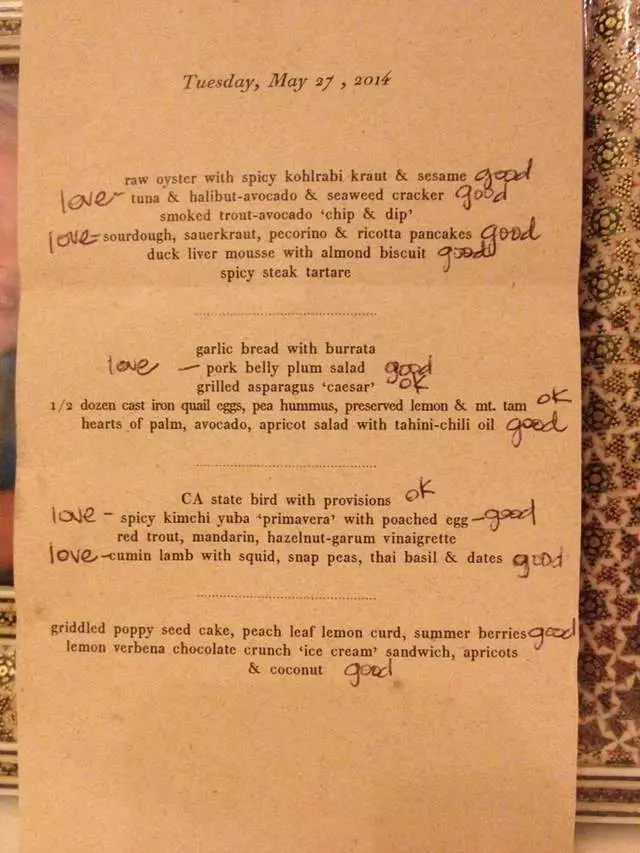 Tuesday, May 27, 2014
raw oyster with spicy kohlrabi kraut & sesame good
love- tuna & halibut-avocado & seaweed cracker good
smoked trout-avocado 'chip & dip'
love- sourdough, sauerkraut, pecorino & ricotta pancakes good
duck liver mousse with almond biscuit good
spicy steak tartare
garlic bread with burrata
love - pork belly plum salad good
grilled asparagus 'caesar' ok
1/2 dozen cast iron quail eggs, pea hummus, preserved lemon & mt. tam ok
hearts of palm, avocado, apricot salad with tahini-chili oil good
CA state bird with provisions ok
love - spicy kimchi yuba 'primavera' with poached egg -good
red trout, mandarin, hazelnut-garum vinaigrette
love- cumin lamb with squid, snap peas, thai basil & dates good
griddled poppy seed cake, peach leaf lemon curd, summer berries good
lemon verbena chocolate crunch 'ice cream' sandwich, apricots
& coconut good